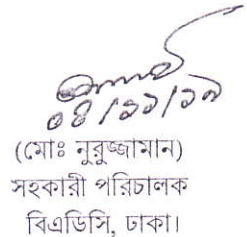 ০৪/১১/১৯
(মোঃ নুরুজ্জামান)
সহকারী পরিচালক
বিএডিসি, ঢাকা।